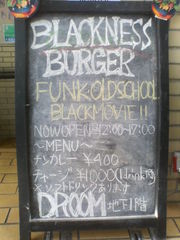 BLACKNESS
BURGER
FUNK.OLDSCHOOL
BLACKMOVIE!!
NOW OPEN 12:00~17:00
~MENU~
チキンカレー ¥400
チャージ ¥1000 (1drink付)
※ソフトドリンクあります
DROOM 地下1階